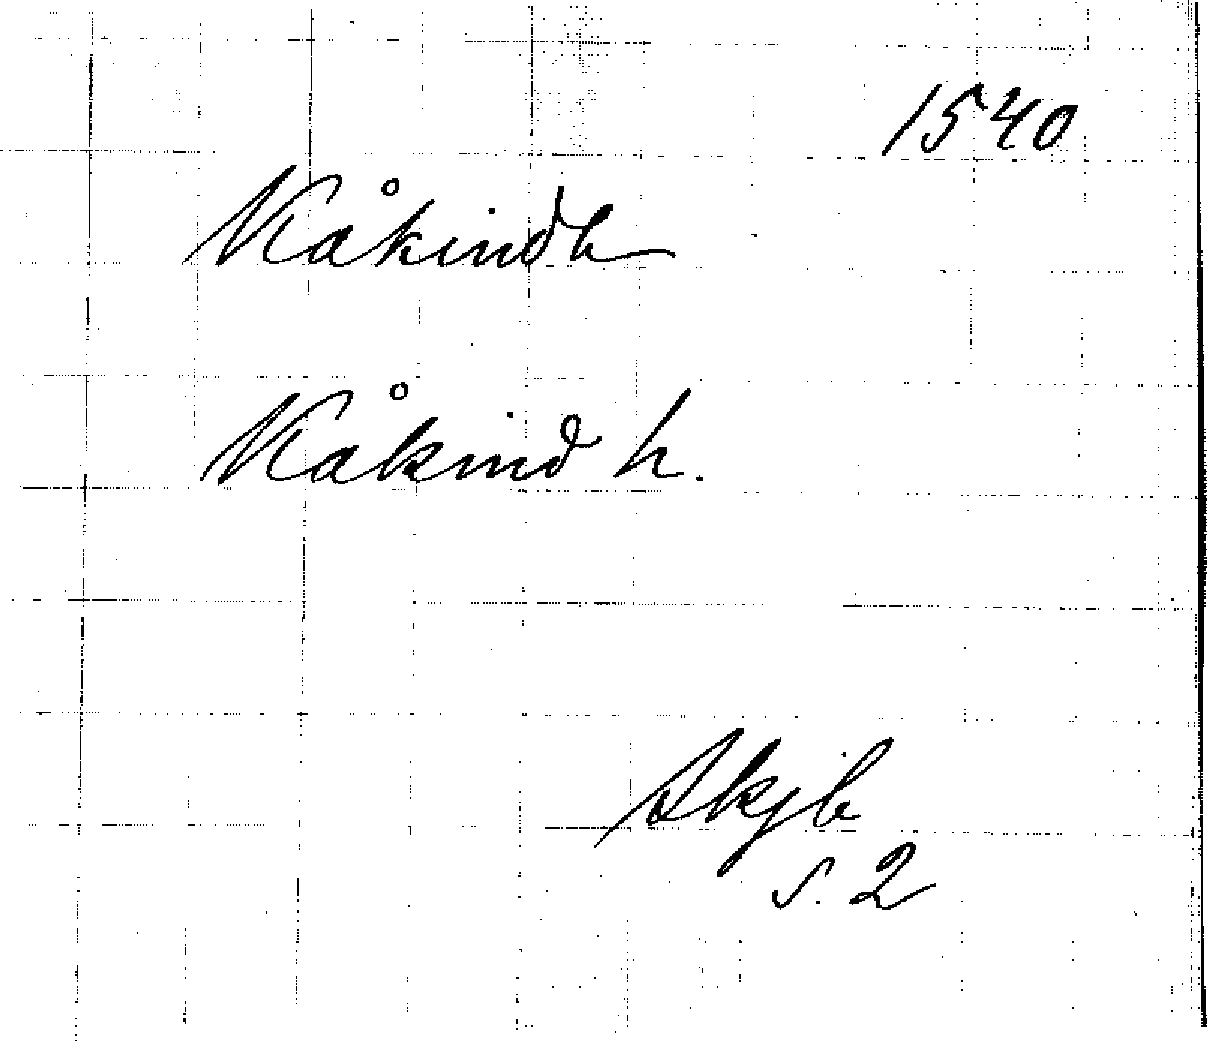 1540
Kåkindh
Kåkind h.
Skjb
s. 2